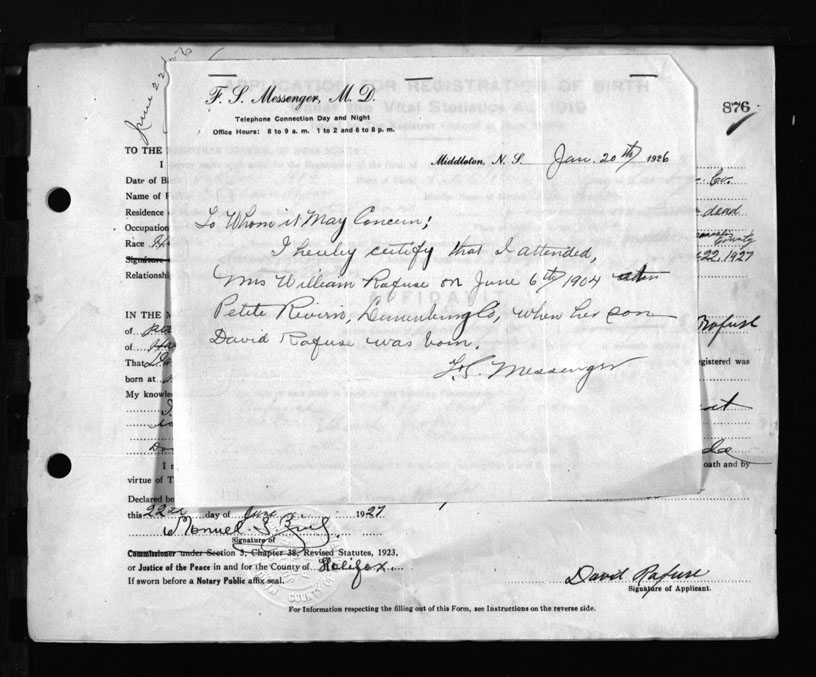 June 22
F. S. Messenger, M. D.
Telephone Connection Day and Night
Office Hours: 8 to 9 a. m. 1 to 2 and 6 to 8 p. m.
876
Middleton, N. S. Jan. 20th 1926
To Whom it May Concern;
I hereby certify that I attended,
Mrs William Rafuse on June 6th 1904 at
Petite Riviri, Lunenburg Co, when her son
David Rafuse was born.
F. S. Messenger
APPLICATION FOR REGISTRATION OF BIRTH
TO THE
I
Date of B
Co.
Name of F
Residence
dead
Occupation
County
Race
Signature
22, 1927
Relationship
AFFIDAVIT
IN THE M
of
Rafuse
of
That
egistered was
born at
My knowle
it
I
oath and by
virtue of T
Declared be
this 22nd day of June 1927
Signature of
Commissioner under Section 3, Chapter 38, Revised Statutes, 1923,
or Justice of the Peace in and for the County of Halifax
If sworn before a Notary Public affix seal.
David Rafuse
Signature of Applicant.
For Information respecting the filling out of this Form, see Instructions on the reverse side.